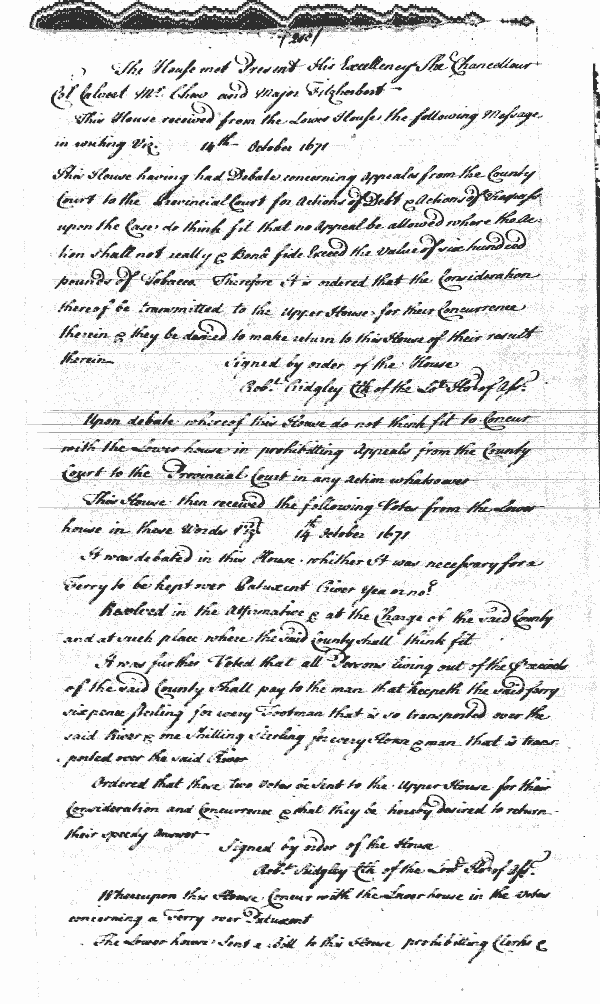 The House met Present His Excellency The Chancellour
Col Calvert Mr. Chew and Major Fitzherbert
This House received from the Lower House the following Message
in writing Viz. 14th October 1671
This House having had Debate concerning Appeales from the County
Court to the Provincial Court for Actions of Debt & Actions of Trespass
upon the Case do think fit that no Appeal be allowed where the Ac-
tion shall not really & Bona fide Exceed the Value of six hundred
pounds of Tobacco Therefore it is ordered that the Consideration
thereof be transmitted to the Upper House for their Concurrence
therein & they be desired to make return to this House of their result
therein Signed by order of the House
Robt. Ridgley Clk of the Lowr Ho. of Ass.
Upon debate whereof this House do not think fit to Concur
with the Lower house in prohibiting Appeals from the County
Court to the Provincial Court in any Action whatsoever
This House then received the following Votes from the Lower
house in these Words Viz. 14th October 1671
It was debated in this House whither it was necessary for a
Ferry to be kept over Patuxent River yea or no?
Resolved in the Affirmative & at the Charge of the said County
and at such place where the said County shall think fit
It was further Voted that all Persons living out of the Precincts
of the said County shall pay to the man that keepeth the said ferry
sixpence sterling for every Footman that is so transported over the
said River & one Shilling Sterling for every Horse & man that is trans
ported over the said River
Ordered that these two Votes be sent to the Upper House for their
Consideration and Concurrence & that they be hereby desired to return
their speedy Answer
Signed by order of the House
Robt. Ridgley Clk of the Lowr Ho. of Ass.
Whereupon this House Concur with the Lower house in the Votes
concerning a Ferry over Patuxent
The Lower house Sent a Bill to this House prohibitting Clerks &